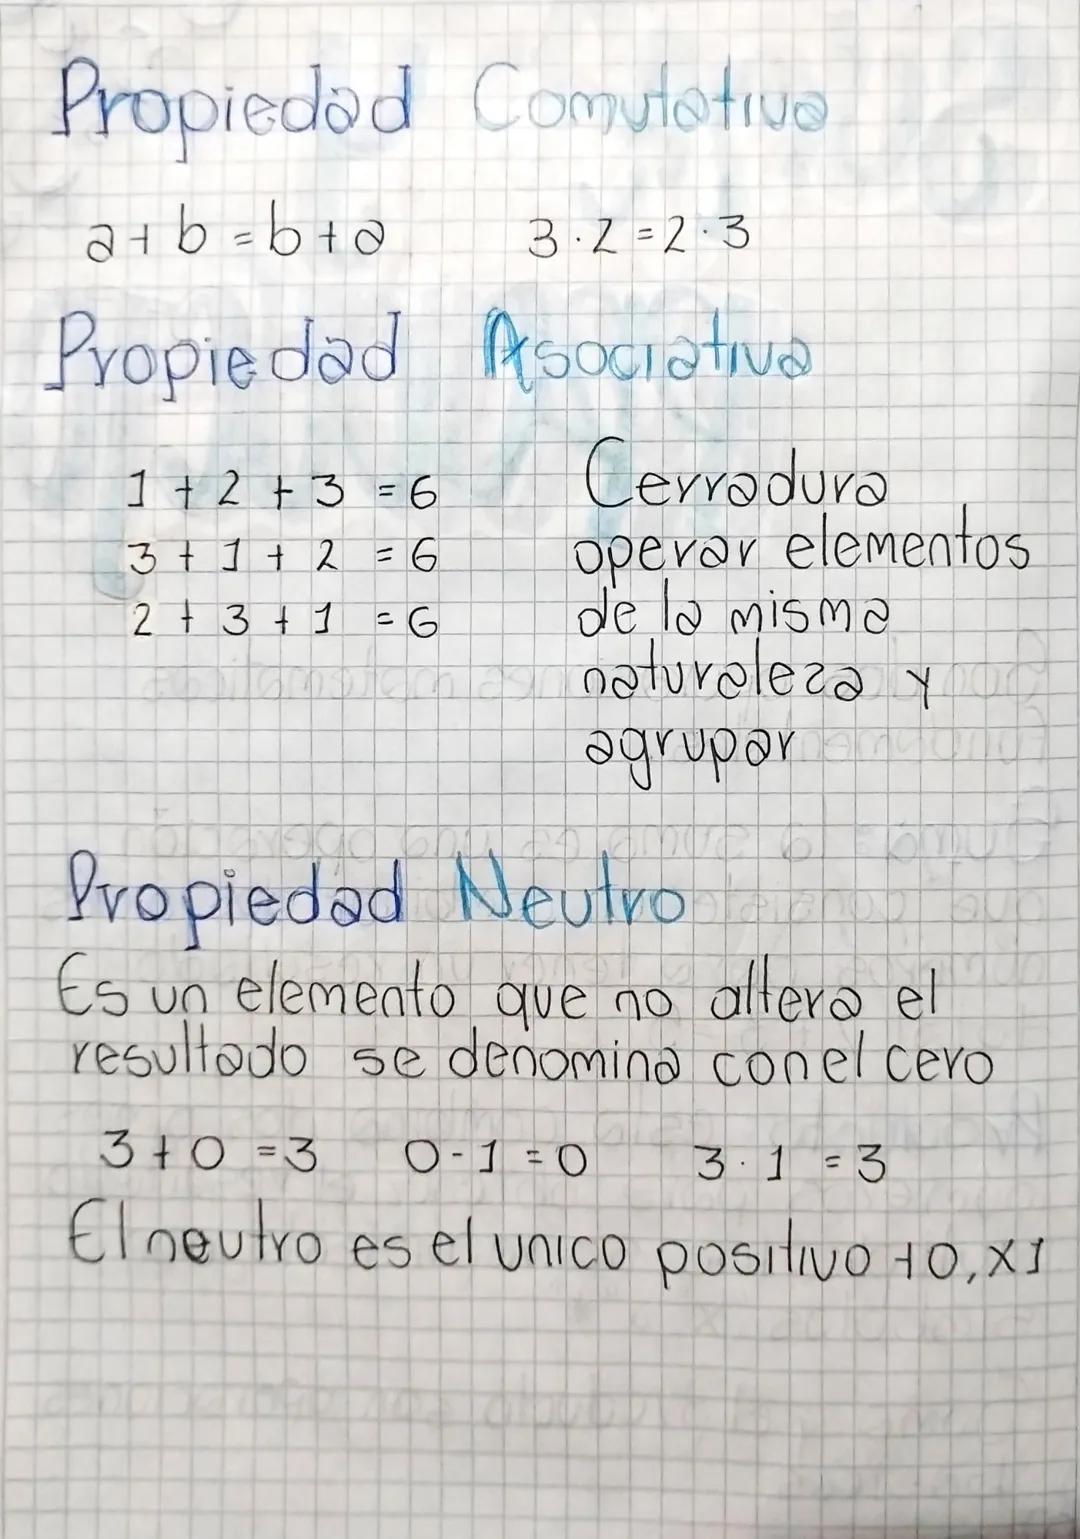 Propiedad Comutativa
a+b=b+a 3·2=2·3
Propiedad Asociativa
1+2+3=6
3+1+2=6
2+3+1=6
Cerradura
operar elementos
de la misma
naturaleza y
agrupar
Propiedad Neutro
Es un elemento que no altera el
resultado se denomina con el cero
3+0=3 0-1=0 3·1=3
El neutro es el unico positivo +0,x1